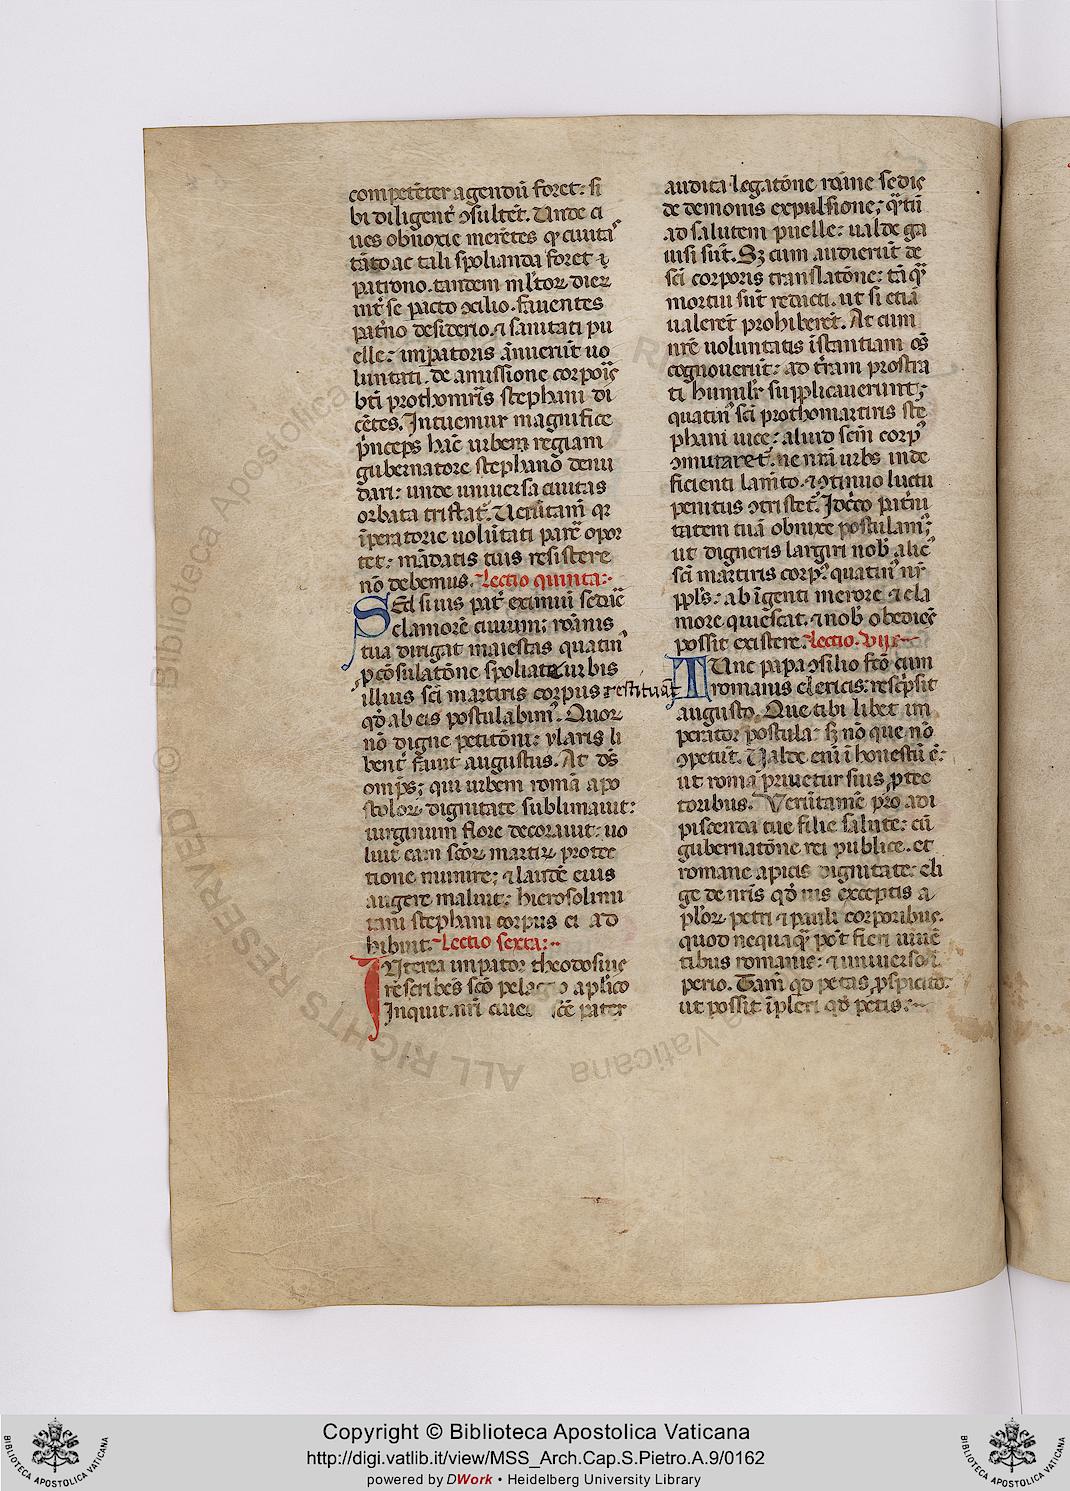 competēter agendū foret: si
bi diligent᷑ ꝯsultet᷑. Unde ci
ues obnoxie merētes qꝛ ciuita
tāto ac tali spolianda foret
patrono. tandem
int᷑ se pacto ꝯsilio. fauentes
pat᷑no desiderio. ⁊ sanitati pu
elle: imꝑatoris ānuerūt uo
luntati. de amissione corpoꝝ
bt̄i prothomr̄is stephani di
cētes. Intuemur magnifice
p̄nceps hāc urbem regiam
gubernatore stephano denu
dari: unde uniuersa ciuitas
orbata tristat᷑. Uerūtam̄ qꝛ
īperatorie uolūtati parē opor
tet: mādatis tuis resistere
nō debemus. Lectio quinta:
Sed si uis pat᷑ eximiū sedare
clamorē ciuium: romanis
tua dirigat maiestas quatin᷒
ꝓ cōsulatōne spoliate urbis
illius sc̄i martiris corpus restituāt
qd̄ ab eis postulabim᷒. Quoꝝ
nō digne petitōni: ylaris li
bent᷑ fauit augustus. At ds̄
omp̄s: qui urbem romā apo
stoloꝝ dignitate sublimauit:
uirginum flore decorauit: uo
luit eam sc̄oꝝ martirꝝ protec
tione munire: ⁊ laudē eius
augere maluit: hierosolimi
tani stephani corpus ei ad
hibuit. Lectio sexta:
Interea imꝑator theodosius
rescribēs sc̄o pelagio apl̄ico
Inquit. nr̄i ciues sc̄e pater
audita legatōne romane sedis
de demonis expulsione: qꝫtū
ad salutem puelle: ualde ga
uisi sūt. Sꝫ cum audierūt de
sc̄i corporis translatōne: tāqꝫ
mortui sūt redacti. ut si etiā
ualeret prohiberēt. At cum
nr̄e uoluntatis īstantiam oēs
cognouerūt: ad t᷑ram prostra
ti humilit᷑ supplicauerunt:
quatin᷒ sc̄i prothomartiris ste
phani uice: aliud sc̄m corp᷒
ꝯmutaret᷑. ne nr̄a urbs inde
ficienti lamēto. ⁊ ꝯtinuo luctu
penitus ꝯtristet᷑. Idcirco pat᷑ni
tatem tuā obnixe postulam᷒:
ut digneris largiri nob̄ alic᷒
sc̄i martiris corp᷒. quatin᷒ nr̄
ppl̄s: ab īgenti merore ⁊ cla
more quiescat. ⁊ nob̄ obediēs
possit existere. lectio. vii
Tunc papa ꝯsilio fc̄o cum
romanis clericis: resc̄psit
augusto. Que tibi libet im
perator postula: sꝫ nō que nō
ꝯpetūt. Ualde eni īhonestū ē:
ut roma priuetur suis ꝓtec
toribus. Verūtamē pro adi
piscenda tue filie salute: cū
gubernatōne rei publice. et
romane apicis dignitate: eli
ge de nr̄is qd̄ uis exceptis a
pl̄oꝝ petri ⁊ pauli corporibus.
quod nequaqꝫ pōt fieri uiuē
tibus romanis: ⁊ uniuerso ī
perio. Tam̄ qd̄ petas ꝓspicito.
ut possit īpleri qd̄ petis:
Copyright © Biblioteca Apostolica Vaticana
http://digi.vatlib.it/view/MSS_Arch.Cap.S.Pietro.A.9/0162
powered by DWork • Heidelberg University Library
BIBLIOTECA APOSTOLICA VATICANA
BIBLIOTECA APOSTOLICA VATICANA